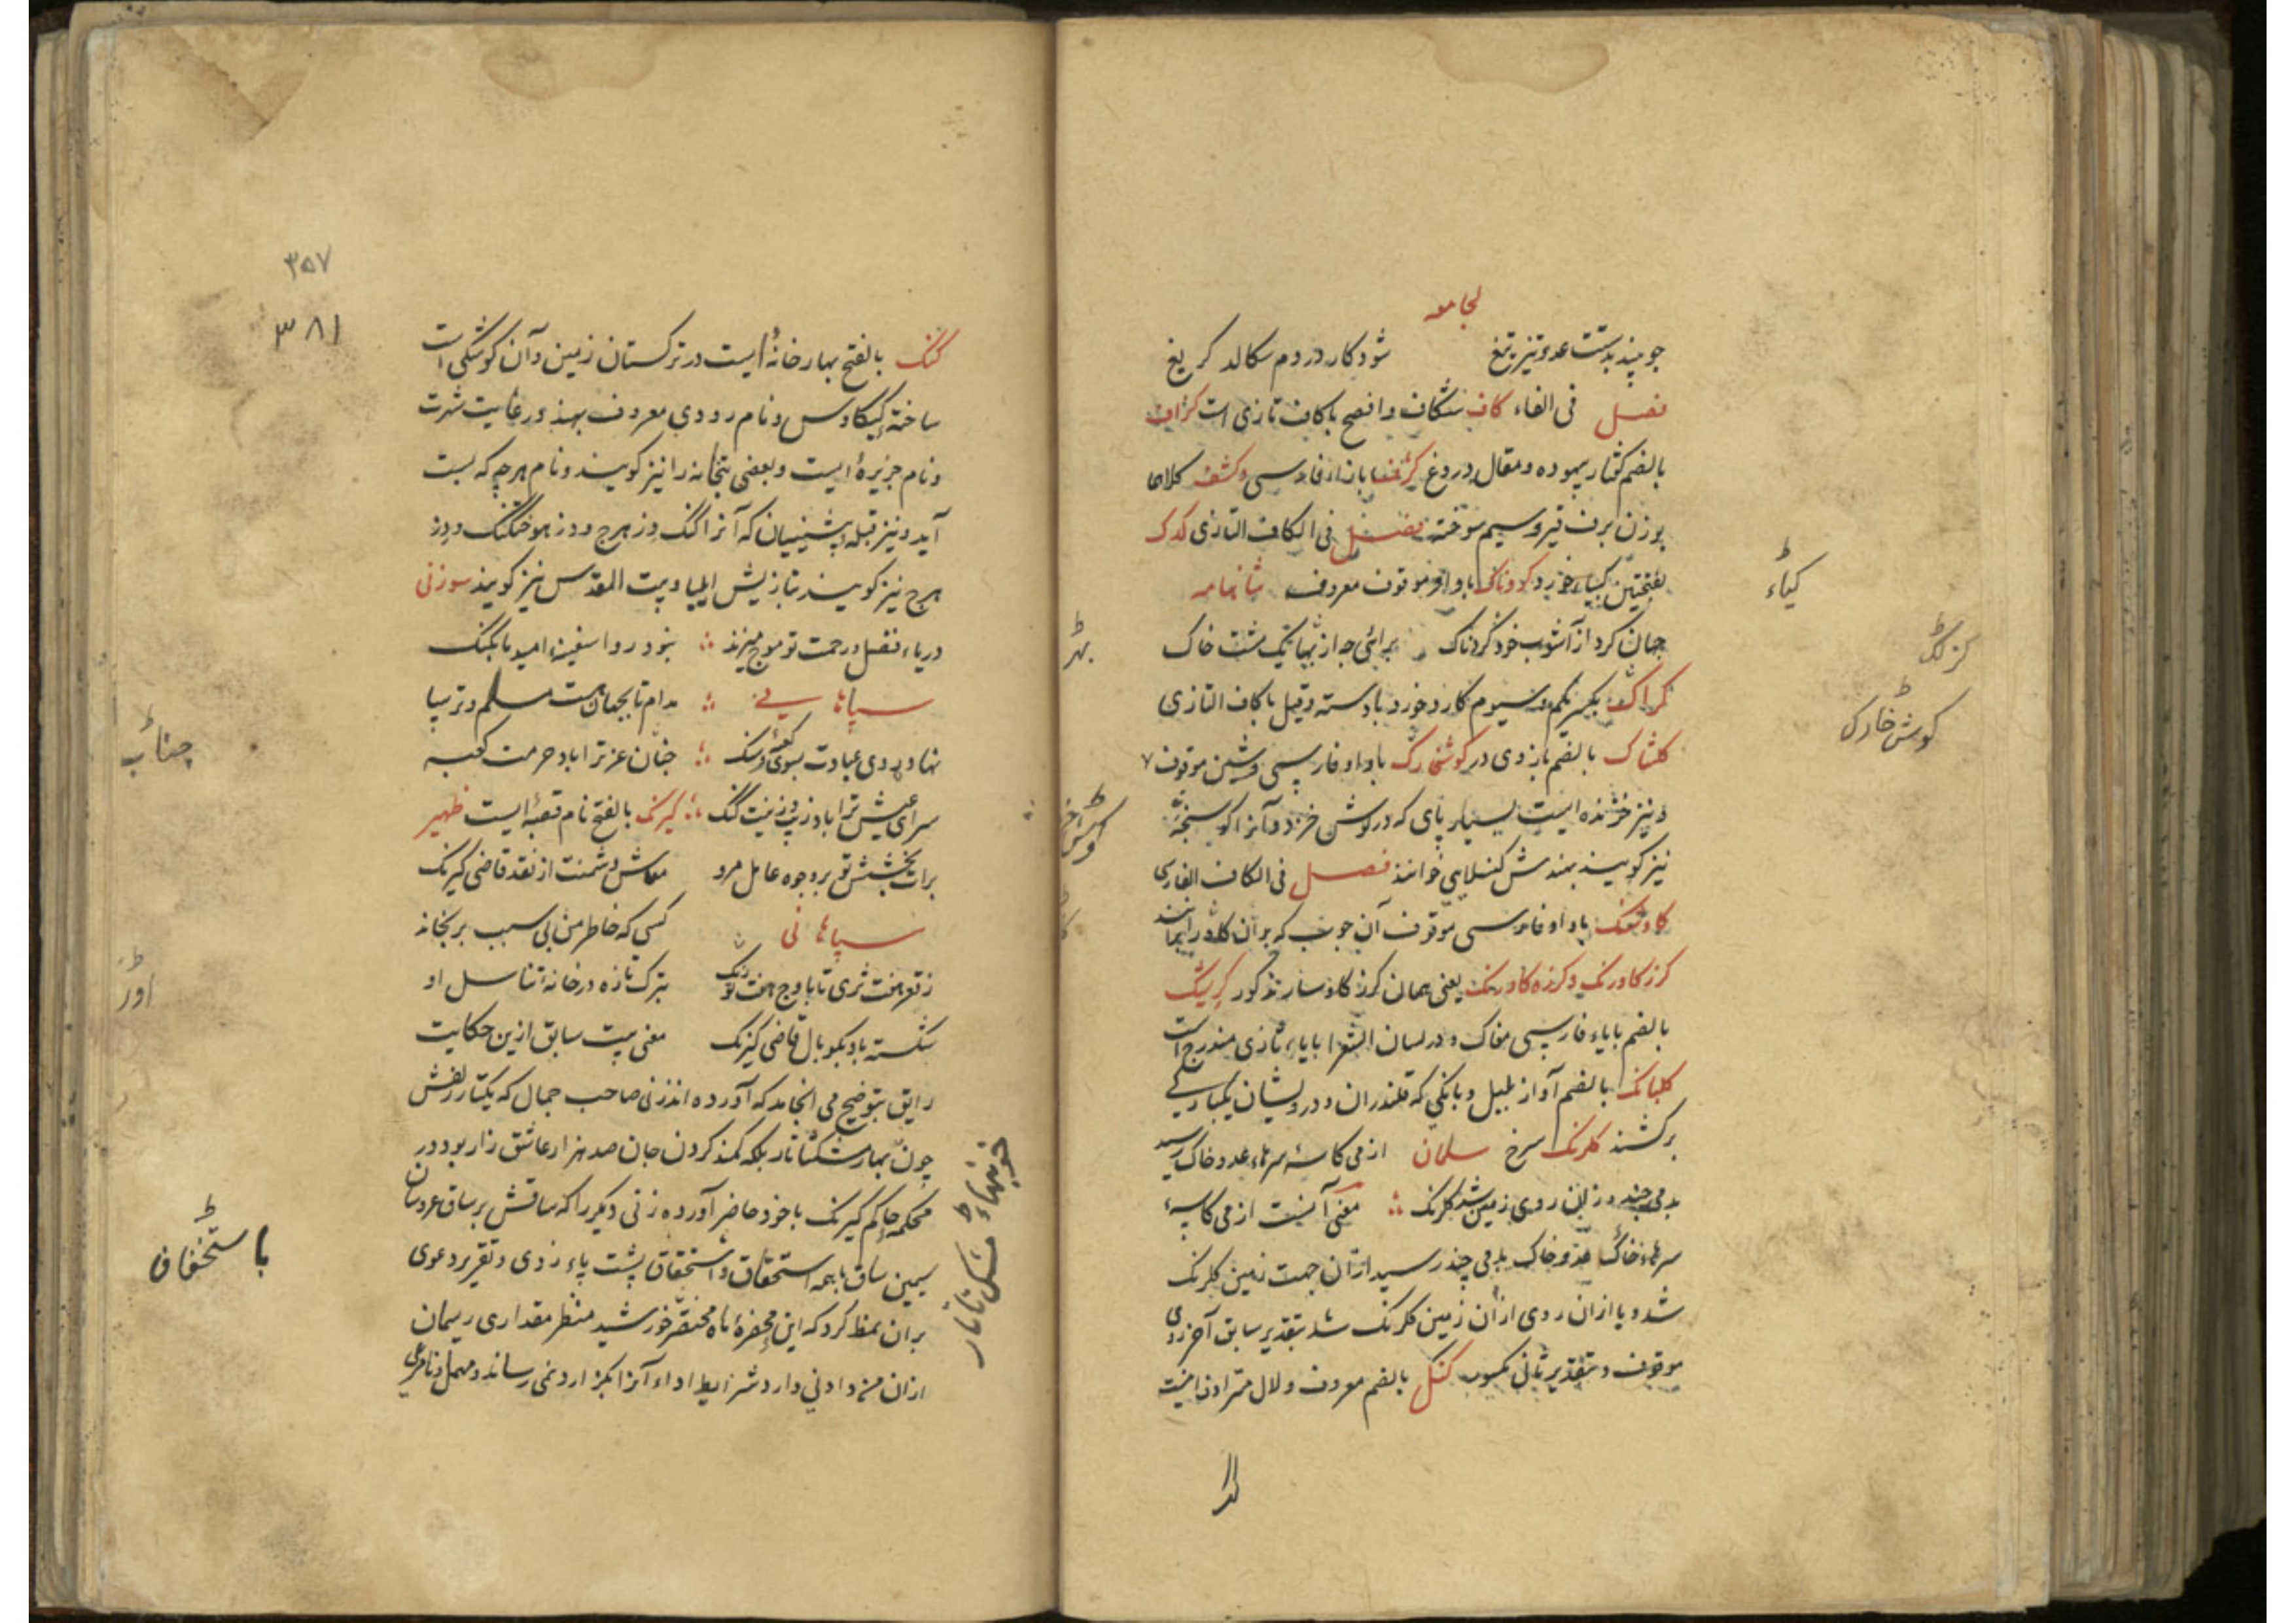 لجامعه
چو بیند بدست عدو تیز تیغ شود کار در دم سکالد کریغ
فصل فی الفاء کاف شکاف و افصح با کاف تازی است کزاف
بالضم گفتار بیهوده و مقال دروغ بازاء فارسی و کشف کلاهما
بوزن برف قیر و سیم سوخته فصل فی الکاف التازی کدک
بفتحتین کیاء خورد کروناک با واو موقوف معروف شانهامه
جهان کرد از آشوب خود کردناک برائی چه از بهایک مشت خاک
بکسر یکم و سیوم کارد خورد با دسته و قیل با کاف التازی
کلشاک بالضم بازوی در کوشخارک با واو فارسی و شین موقوف ۷
و نیز خزنده ایست بسیار پای که در کوش خزد و آنرا کوسنجه
نیز کویند بهندش کنسلایی خوانند فصل فی الکاف الفارسی
با واو فارسی موقوف آن چوب که بر آن کاو را بندند
کرز کاورنک و کرزه کاورنک یعنی همان کرز کاوسار مذکور کریشک
بالضم با یاء فارسی مغاک و در لسان الشعرا با یاء تازی مندرج است
کلبانک بالضم آواز بلبل و بانکی که قلندران و درویشان یکبارکی
برکشند کلرنک سرخ سلمان از می کاسه سرهاء عدو خاک رسید
بدمی چند و زان روی زمین شد کلرنک معنی آنست از می کاسهء
سرهاء خاک عدو خاک بدمی چند رسید از آن جهت زمین کلرنک
شد و یا از ان روی از آن زمین کلرنک شد بتقدیر سابق آخر روی
موقوف و بتقدیر ثانی مکسور کنک بالضم معروف و لال مترادف اینست
کیاء
کزلک
کوش خارک
بهر
۳۵۷
۳۸۱
کنک بالفتح بهارخانهٔ ایست در ترکستان زمین و آن کوشکی است
ساختهٔ کیکاوس و نام رودی معروف بهند در غایت شهرت
و نام جزیرهٔ ایست و بعضی بتخانه را نیز کویند و نام هرچه که بست
آید و نیز قبلهٔ پیشینیان که آنرا کنک دز هرج و دز هوختکنک و دز
هرج نیز کویند بتازیش ایلیا و بیت المقدس نیز کویند سوزنی
دریاء فضل و رحمت تو موج میزند بنود روا سفینهٔ امید ما بکنک
سپاهانی مدام تا بجهان هست مسلم و ترسا
نهاده روی عبادت بسوی کعبه و سنک جنان عز ترا باد حرمت کعبه
سرای عیش ترا باد زیب و زینت کنک کیرنک بالفتح نام قصبهٔ ایست ظهیر
برات بخشش تو بر وجوه عامل مرو معاش دشمنت از نقد قاضی کیرنک
سپاهانی کسی که خاطر من بی سبب برنجاند
ز قعر هفت ثری تا باوج هفت اورنک بترک تازه در خانهٔ تناسل او
شکسته باد بکوبال قاضی کیرنک معنی بیت سابق ازین حکایت
رایق بتوضیح می انجامد که آورده اند زنی صاحب جمال که یکتار زلفش
چون بهار مشکتاتار بلکه کمند کردن جان صد هزار عاشق زار بود در
محکمهٔ حاکم کیرنک با خود حاضر آورده زنی دیکر را که ساقش بر ساق عروسان
سیمین ساق با همه استحقاق و استحقاق پشت پاء زدی و تقریر دعوی
بران نمط کرد که این محضرهٔ ماه مختصر خورشید منظر مقداری ریسمان
ازان من دادنی دارد شرایط اداء آنرا بکزارد نمی رساند و مهمل و نامرعی
چناب
اور
باستخفاف
خونبهاء مشک تاتار